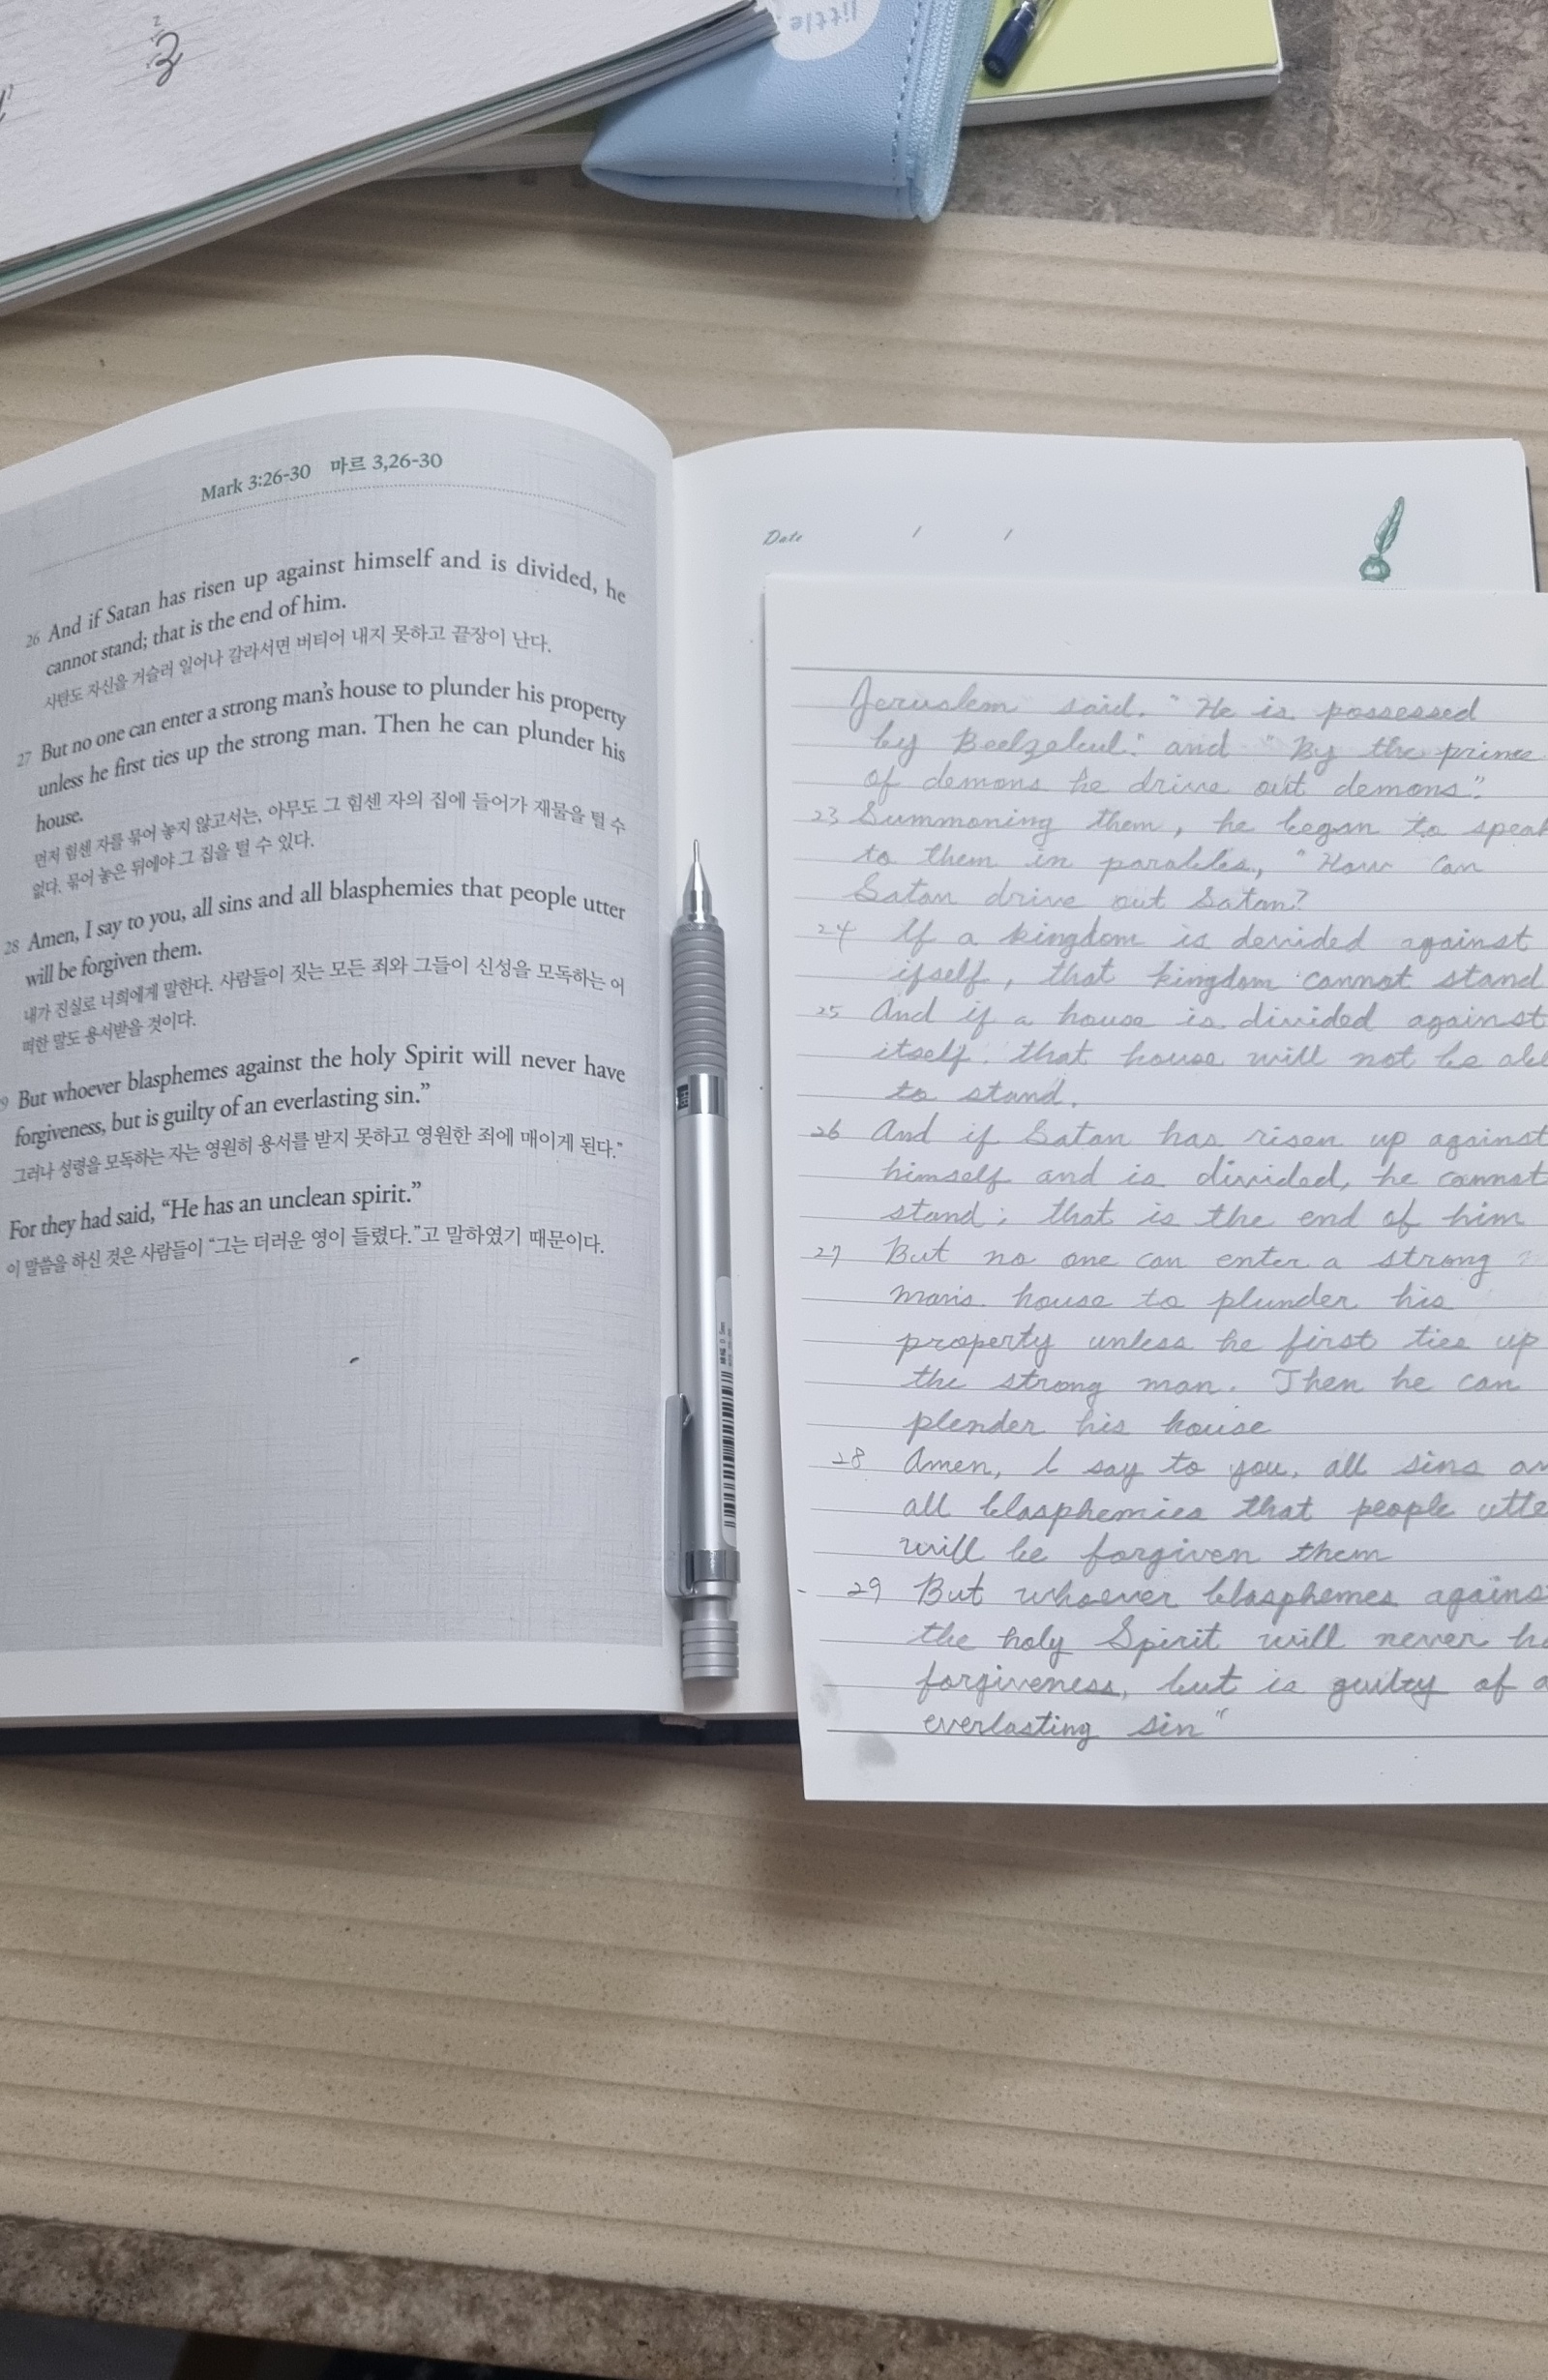 little
3
Mark 3:26-30 마르 3,26-30
26 And if Satan has risen up against himself and is divided, he
cannot stand; that is the end of him.
사탄도 자신을 거슬러 일어나 갈라서면 버티어 내지 못하고 끝장이 난다.
27 But no one can enter a strong man's house to plunder his property
unless he first ties up the strong man. Then he can plunder his
house.
먼저 힘센 자를 묶어 놓지 않고서는, 아무도 그 힘센 자의 집에 들어가 재물을 털 수
없다. 묶어 놓은 뒤에야 그 집을 털 수 있다.
28 Amen, I say to you, all sins and all blasphemies that people utter
will be forgiven them.
내가 진실로 너희에게 말한다. 사람들이 짓는 모든 죄와 그들이 신성을 모독하는 어
떠한 말도 용서받을 것이다.
9 But whoever blasphemes against the holy Spirit will never have
forgiveness, but is guilty of an everlasting sin.”
그러나 성령을 모독하는 자는 영원히 용서를 받지 못하고 영원한 죄에 매이게 된다.”
For they had said, “He has an unclean spirit.”
이 말씀을 하신 것은 사람들이 “그는 더러운 영이 들렸다.”고 말하였기 때문이다.
Date / /
Jeruslem said. "He is possessed
by Beelzebul." and "By the prince
of demons he drive out demons".
23 Summoning them, he began to speak
to them in parables, "How can
Satan drive out Satan?
24 If a kingdom is devided against
itself, that kingdom cannot stand
25 And if a house is divided against
itself. that house will not be abl
to stand.
26 And if Satan has risen up against
himself and is divided, he cannot
stand; that is the end of him
27 But no one can enter a strong
man's house to plunder his
property unless he first ties up
the strong man. Then he can
plender his house
28 Amen, I say to you, all sins an
all blasphemies that people utte
will be forgiven them
29 But whoever blasphemes agains
the holy Spirit will never ha
forgiveness, but is guilty of a
everlasting sin"